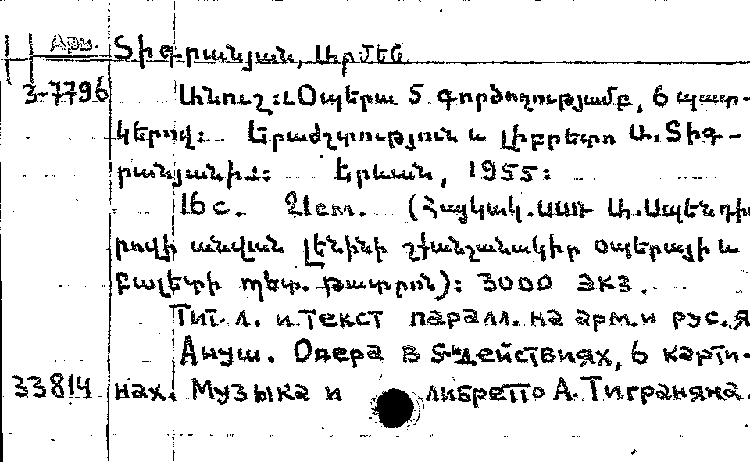 Арм. Տիգրանյան, Արմեն
3-7796 Անուշ: Օպերա 5 գործողությամբ, 6 պատ-
կերով: Երաժշտություն և լիբրետո Ա. Տիգ-
րանյանի: Երևան, 1955:
16с. 21см. (Հայկակ. ՍՍՌ Ա. Սպենդի
րովի անվան լենինի շքանշանակիր օպերայի և
բալետի պետ. թատրոն): 3000 экз.
Тит. л. и текст паралл. на арм. и рус. я
Ануш. Опера в 5-и действиях, 6 карти-
33814 нах. Музыка и либретто А. Тиграняна.